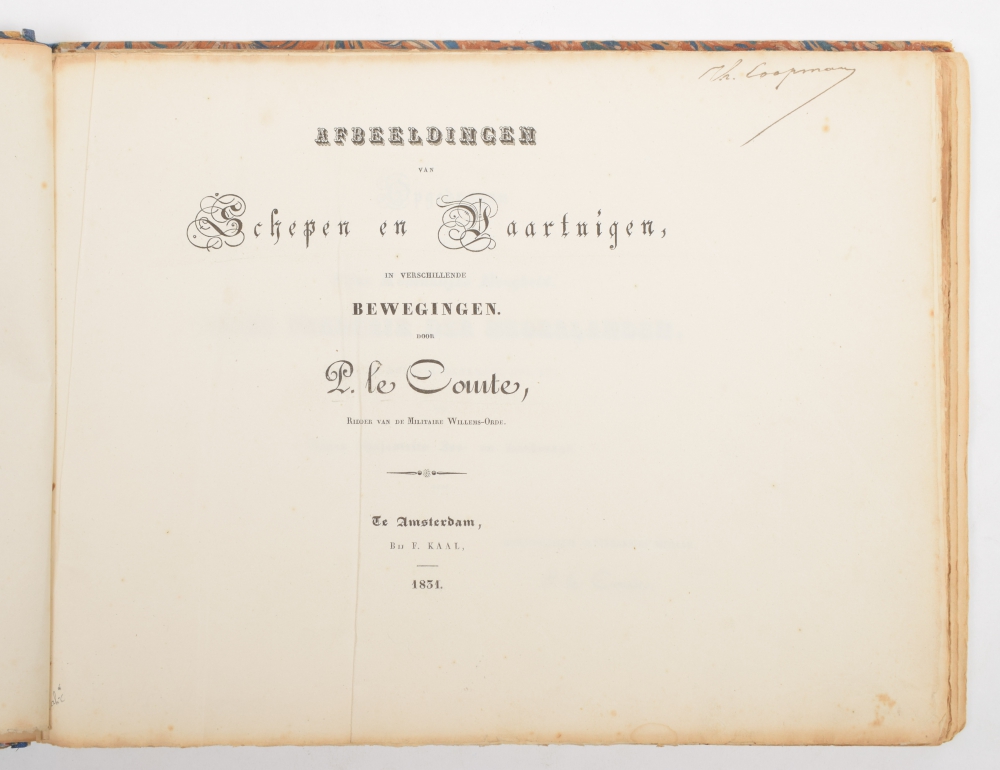 Th. Coopman
AFBEELDINGEN
VAN
Schepen en Vaartuigen,
IN VERSCHILLENDE
BEWEGINGEN.
DOOR
P. le Comte,
RIDDER VAN DE MILITAIRE WILLEMS-ORDE.
Te Amsterdam,
BIJ F. KAAL,
1831.